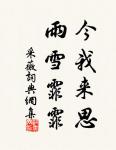 今我来思
雨雪霏霏
采薇詞典網集